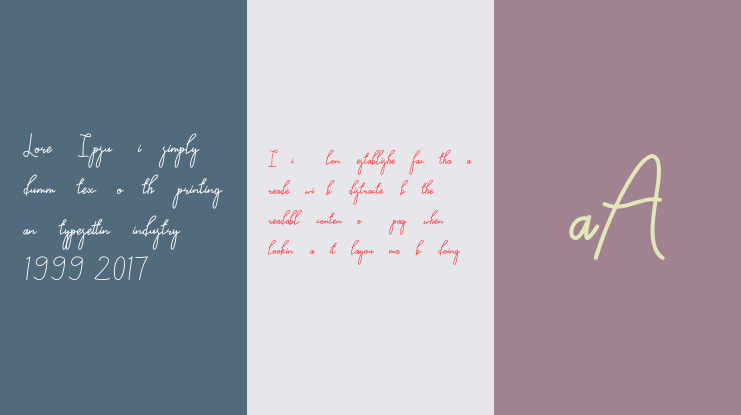 Lore Ipsu i simply
dumm tex o th printing
an typesettin industry
1999 2017
I i lon establishe fac tha a
reade wi b distracte b the
readabl conten o pag when
lookin a it layou ma b doing
aA